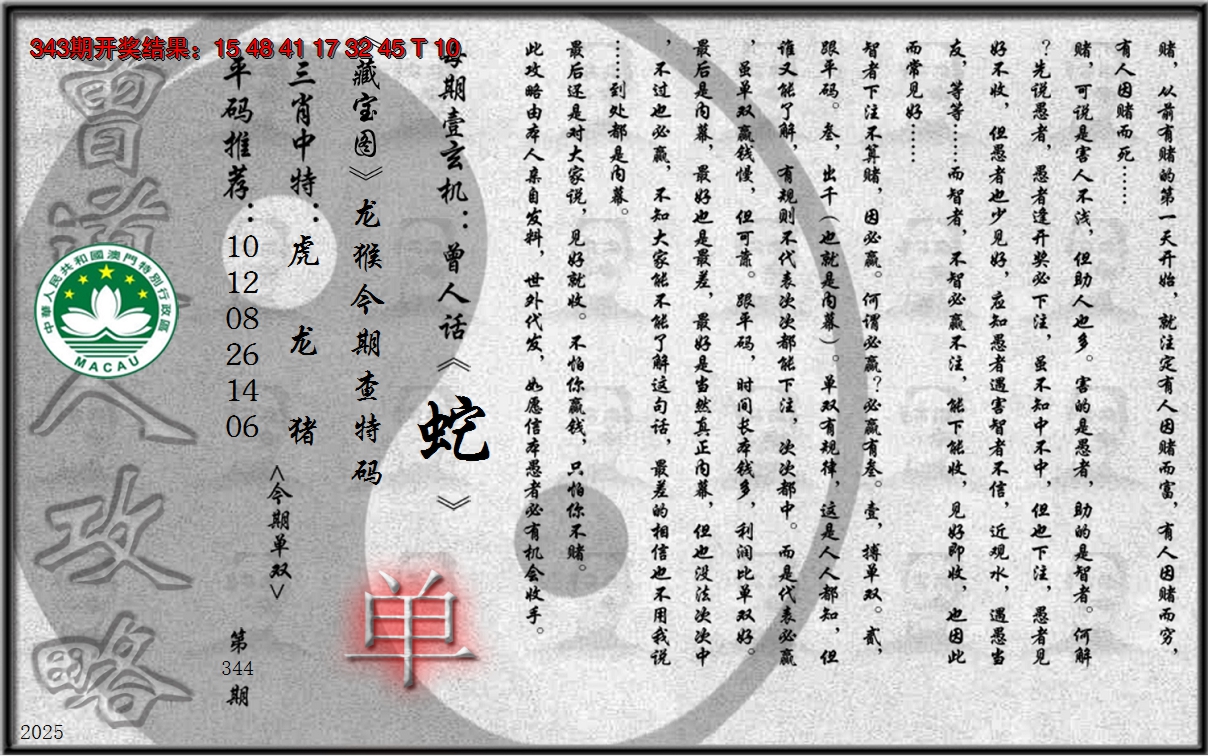 343期开奖结果：15 48 41 17 32 45 T 10
赌，从前有赌的第一天开始，就注定有人因赌而富，有人因赌而穷，
有人因赌而死……
赌，可说是害人不浅，但助人也多。害的是愚者，助的是智者。何解
？先说愚者，愚者逢开奖必下注，虽不知中不中，但也下注，愚者见
好不收，但愚者也少见好，应知愚者遇害智者不信，近观水，遇愚当
友，等等……而智者，不智必赢不注，能下能收，见好即收，也因此
而常见好……
智者下注不算赌，因必赢。何谓必赢？必赢有叁。壹，搏单双。贰，
跟平码。叁，出千（也就是内幕）。单双有规律，这是人人都知，但
谁又能了解，有规则不代表次次都能下注，次次都中。而是代表必赢
，虽单双赢钱慢，但可靠。跟平码，时间长本钱多，利润比单双好。
最后是内幕，最好也是最差，最好是当然真正内幕，但也没法次次中
，不过也必赢，不知大家能不能了解这句话，最差的相信也不用我说
……到处都是内幕。
最后还是对大家说，见好就收。不怕你赢钱，只怕你不赌。
此攻略由本人亲自发料，世外代发，如愿信本愚者必有机会收手。
每期壹玄机：曾人话《蛇》
《藏宝图》龙猴今期查特码
三肖中特：虎 龙 猪
平码推荐：10 12 08 26 14 06
<今期单双>
单
第344期
曾道人攻略
中華人民共和國澳門特別行政區
MACAU
2025